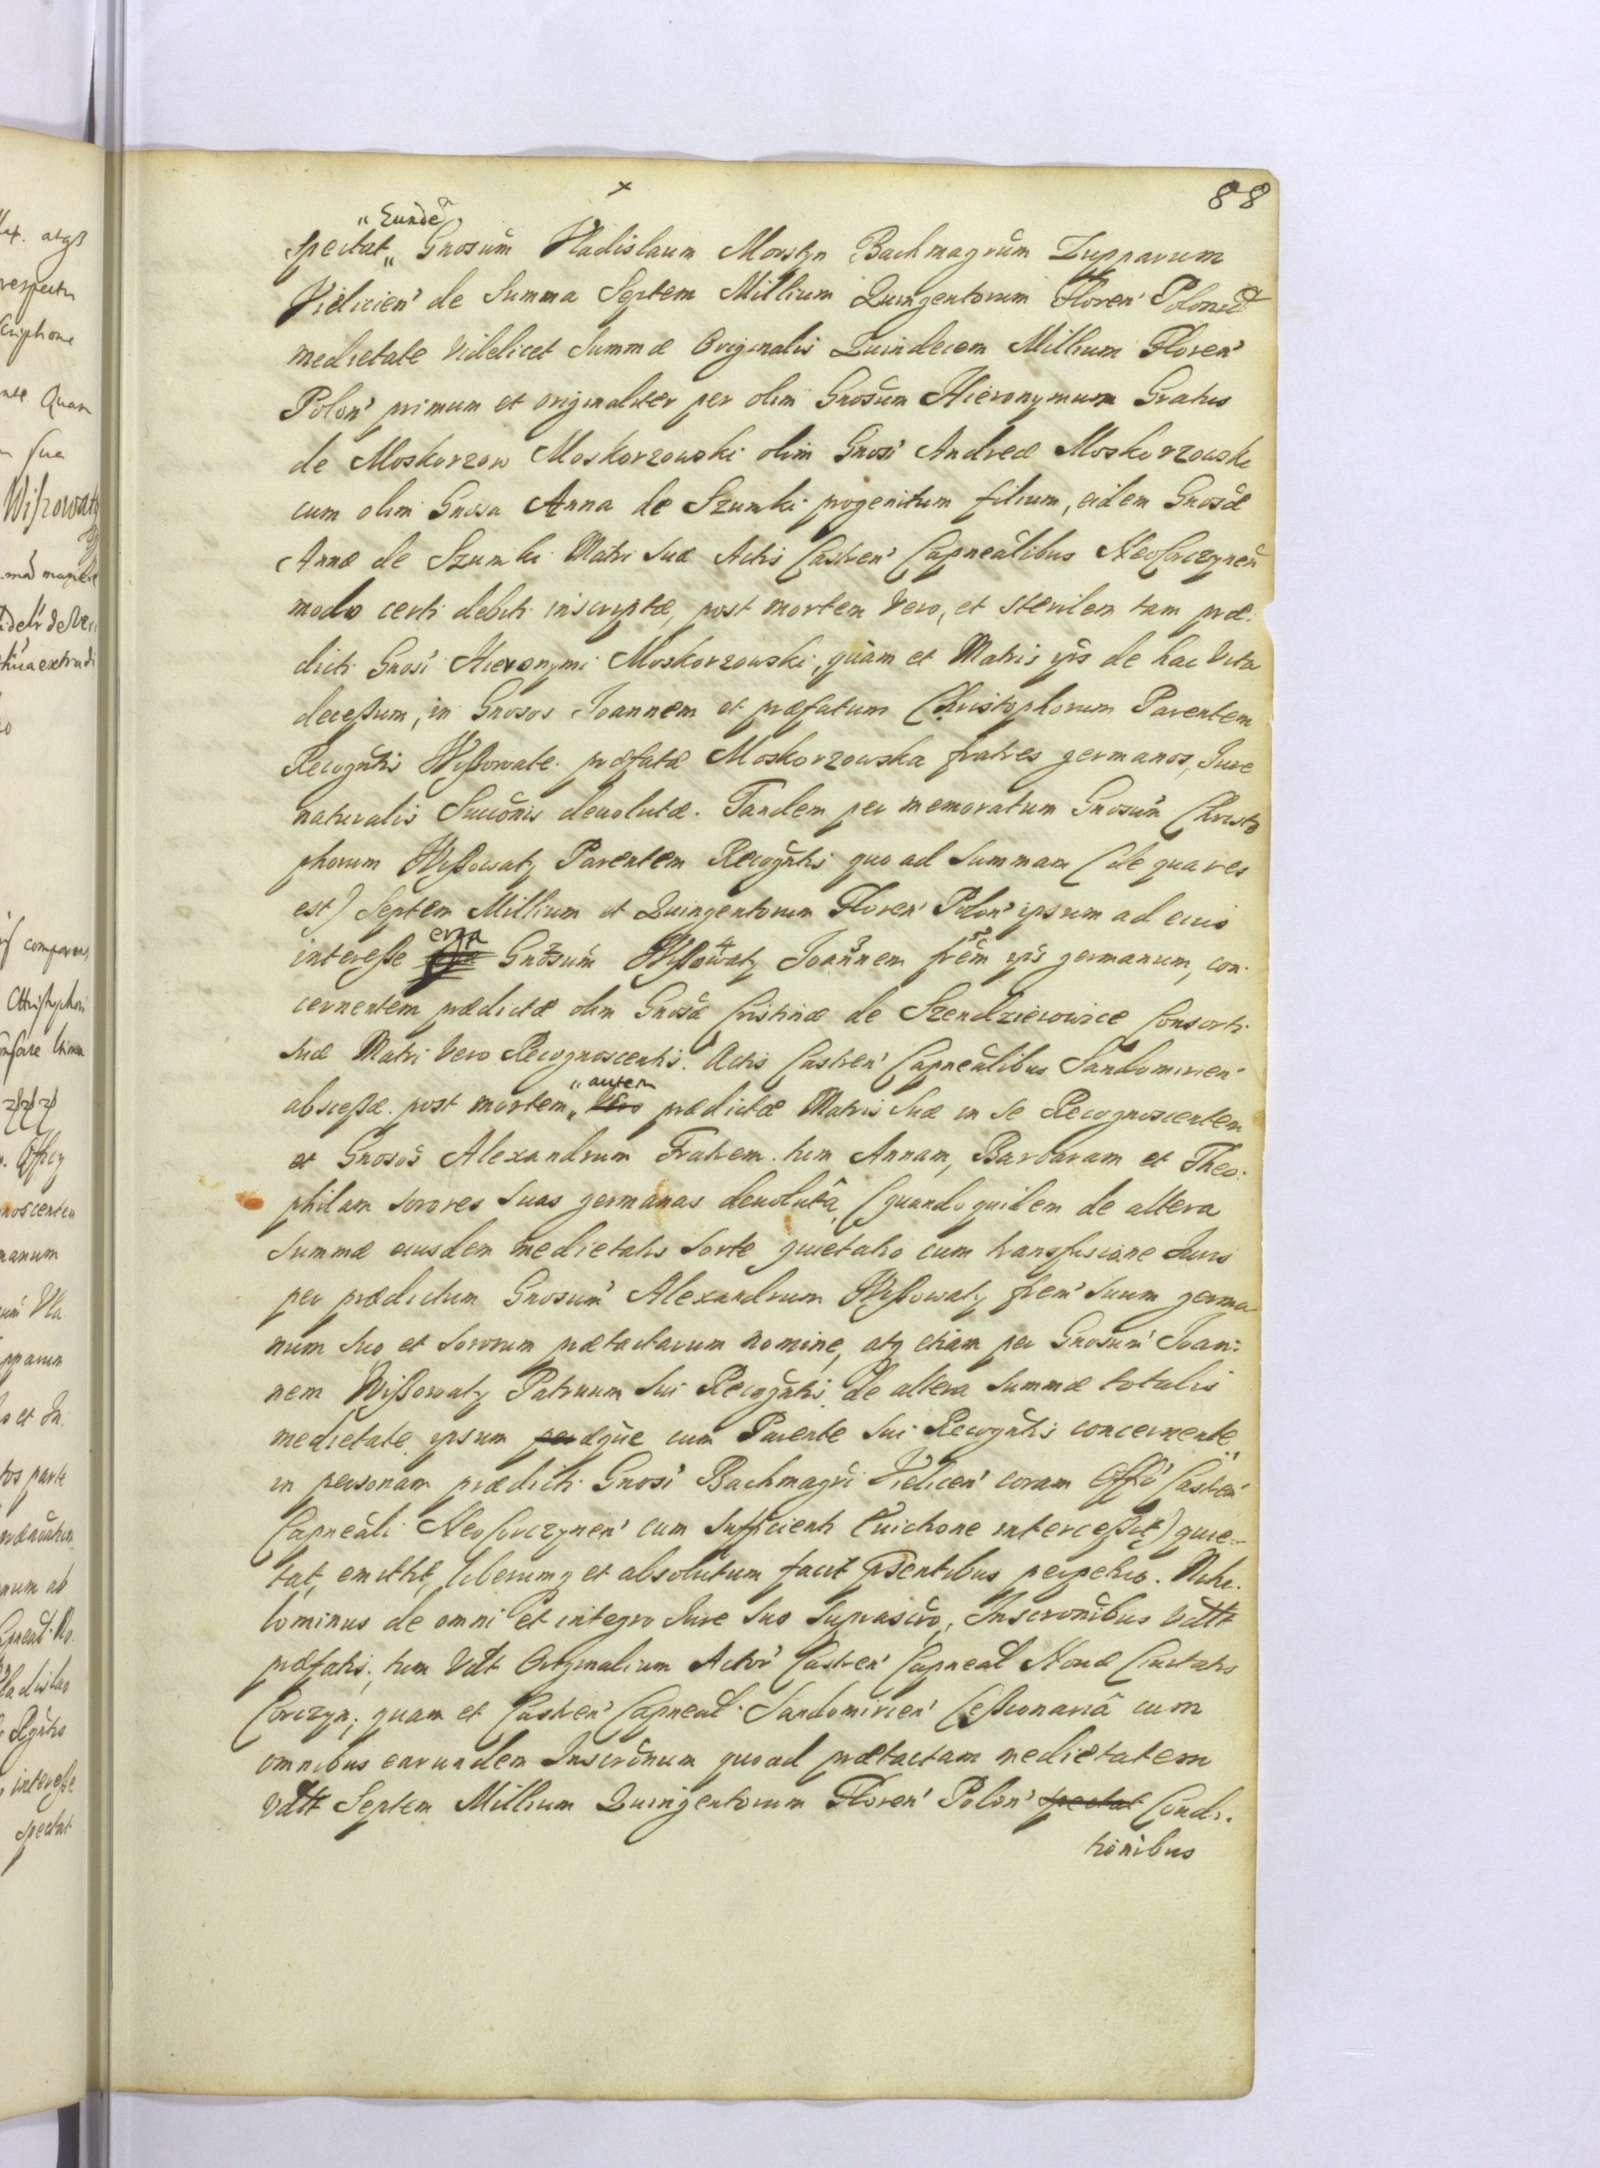 88
"Eundē
Spectat„ Gnosum̄ Vladislaum Morstyn Bachmagrūm Zupparum
Vielicien̄ de Summa Septem Millium Quingentorum Floren' Polon
medietate videlicet Summæ Originalis Quindecem Millium Floren'
Polon' primum et originaliter per olim Gnosūm Hieronymum Gratus
de Moskorzow Moskorzowski olim Gnosi Andreæ Moskorzowski
cum olim Gnosa Anna de Szumki progenitum filium, eidem Gnosæ
Annæ de Szumki Matri Suæ Actis Castren' Capneālibus NeoCorczynen̄
modo certi debiti inscriptæ, post mortem Vero, et sterilem tam præ:
dicti Gnosi Hieronymi Moskorzowski, quàm et Matris ejūs de hac Vita
deceßum, in Gnosos Joannem et præfatum Christophorum Parentem
Recogn̄tis Wißowate præfatæ Moskorzowska fratres germanos, Jure
naturalis Succōnis deuolutæ. Tandem per memoratum Gnosum̄ Christo
phorum Wißowaty Parentem Recogn̄tis quo ad Summam (de qua res
est) Septem Millium et Quingentorum Floren' Polon' ipsum ad eius
intereße erga Gnosum̄ Wißowaty Joannem frēm ejūs germanum, con:
cernentem prædictæ olim Gnosæ Cristinæ de Szendzieiowice Consorti
suæ Matri Vero Recognoscentis. Actis Castren' Capneālibus Sandomirien'
absceßæ. post mortem „autem Vero prædictæ Matris Suæ in se Recognoscentem
et Gnosos̄ Alexandrum Fratrem. tum Annam, Barbaram et Theo:
philam sorores Suas germanas deuolutâ, (quandoquidem de altera
Summæ eiusdem medietatis Sorte quietatio cum transfusione Juris
per prædictum Gnosum̄ Alexandrum Wißowaty frem̄ Suum germa
num Suo et Sororum prætactarum nomine, atq etiam per Gnosum̄ Joan:
nem Wißowaty Patruum Sui Recogn̄tis de altera Summæ totalis
medietate ipsum per æque cum Parente Sui Recogn̄tis concernente
in personam prædicti Gnosi Bachmagrī Vielicen' coram Offō Castren'
Capneāli NeoCorczynen' cum Sufficienti Euictione interceßit) quie:
tat, emittit, liberumq et absolutum facit Psentibus perpetuo. Nihi:
lominus de omni et integro Jure Suo Suprascr̄o, Inscronibus Vdtt
præfatis, tum Vdtt Originalium Actor̄ Castren' Capneal Nouæ Ciuitatis
Corczyn, quam et Castren' Capneal Sandomirien' Ceßionariâ cum
omnibus earundem Inscrōnum quoad prætactam medietatem
Vdtt Septem Millium Quingentorum Floren' Polon' spectat Condi:
tionibus